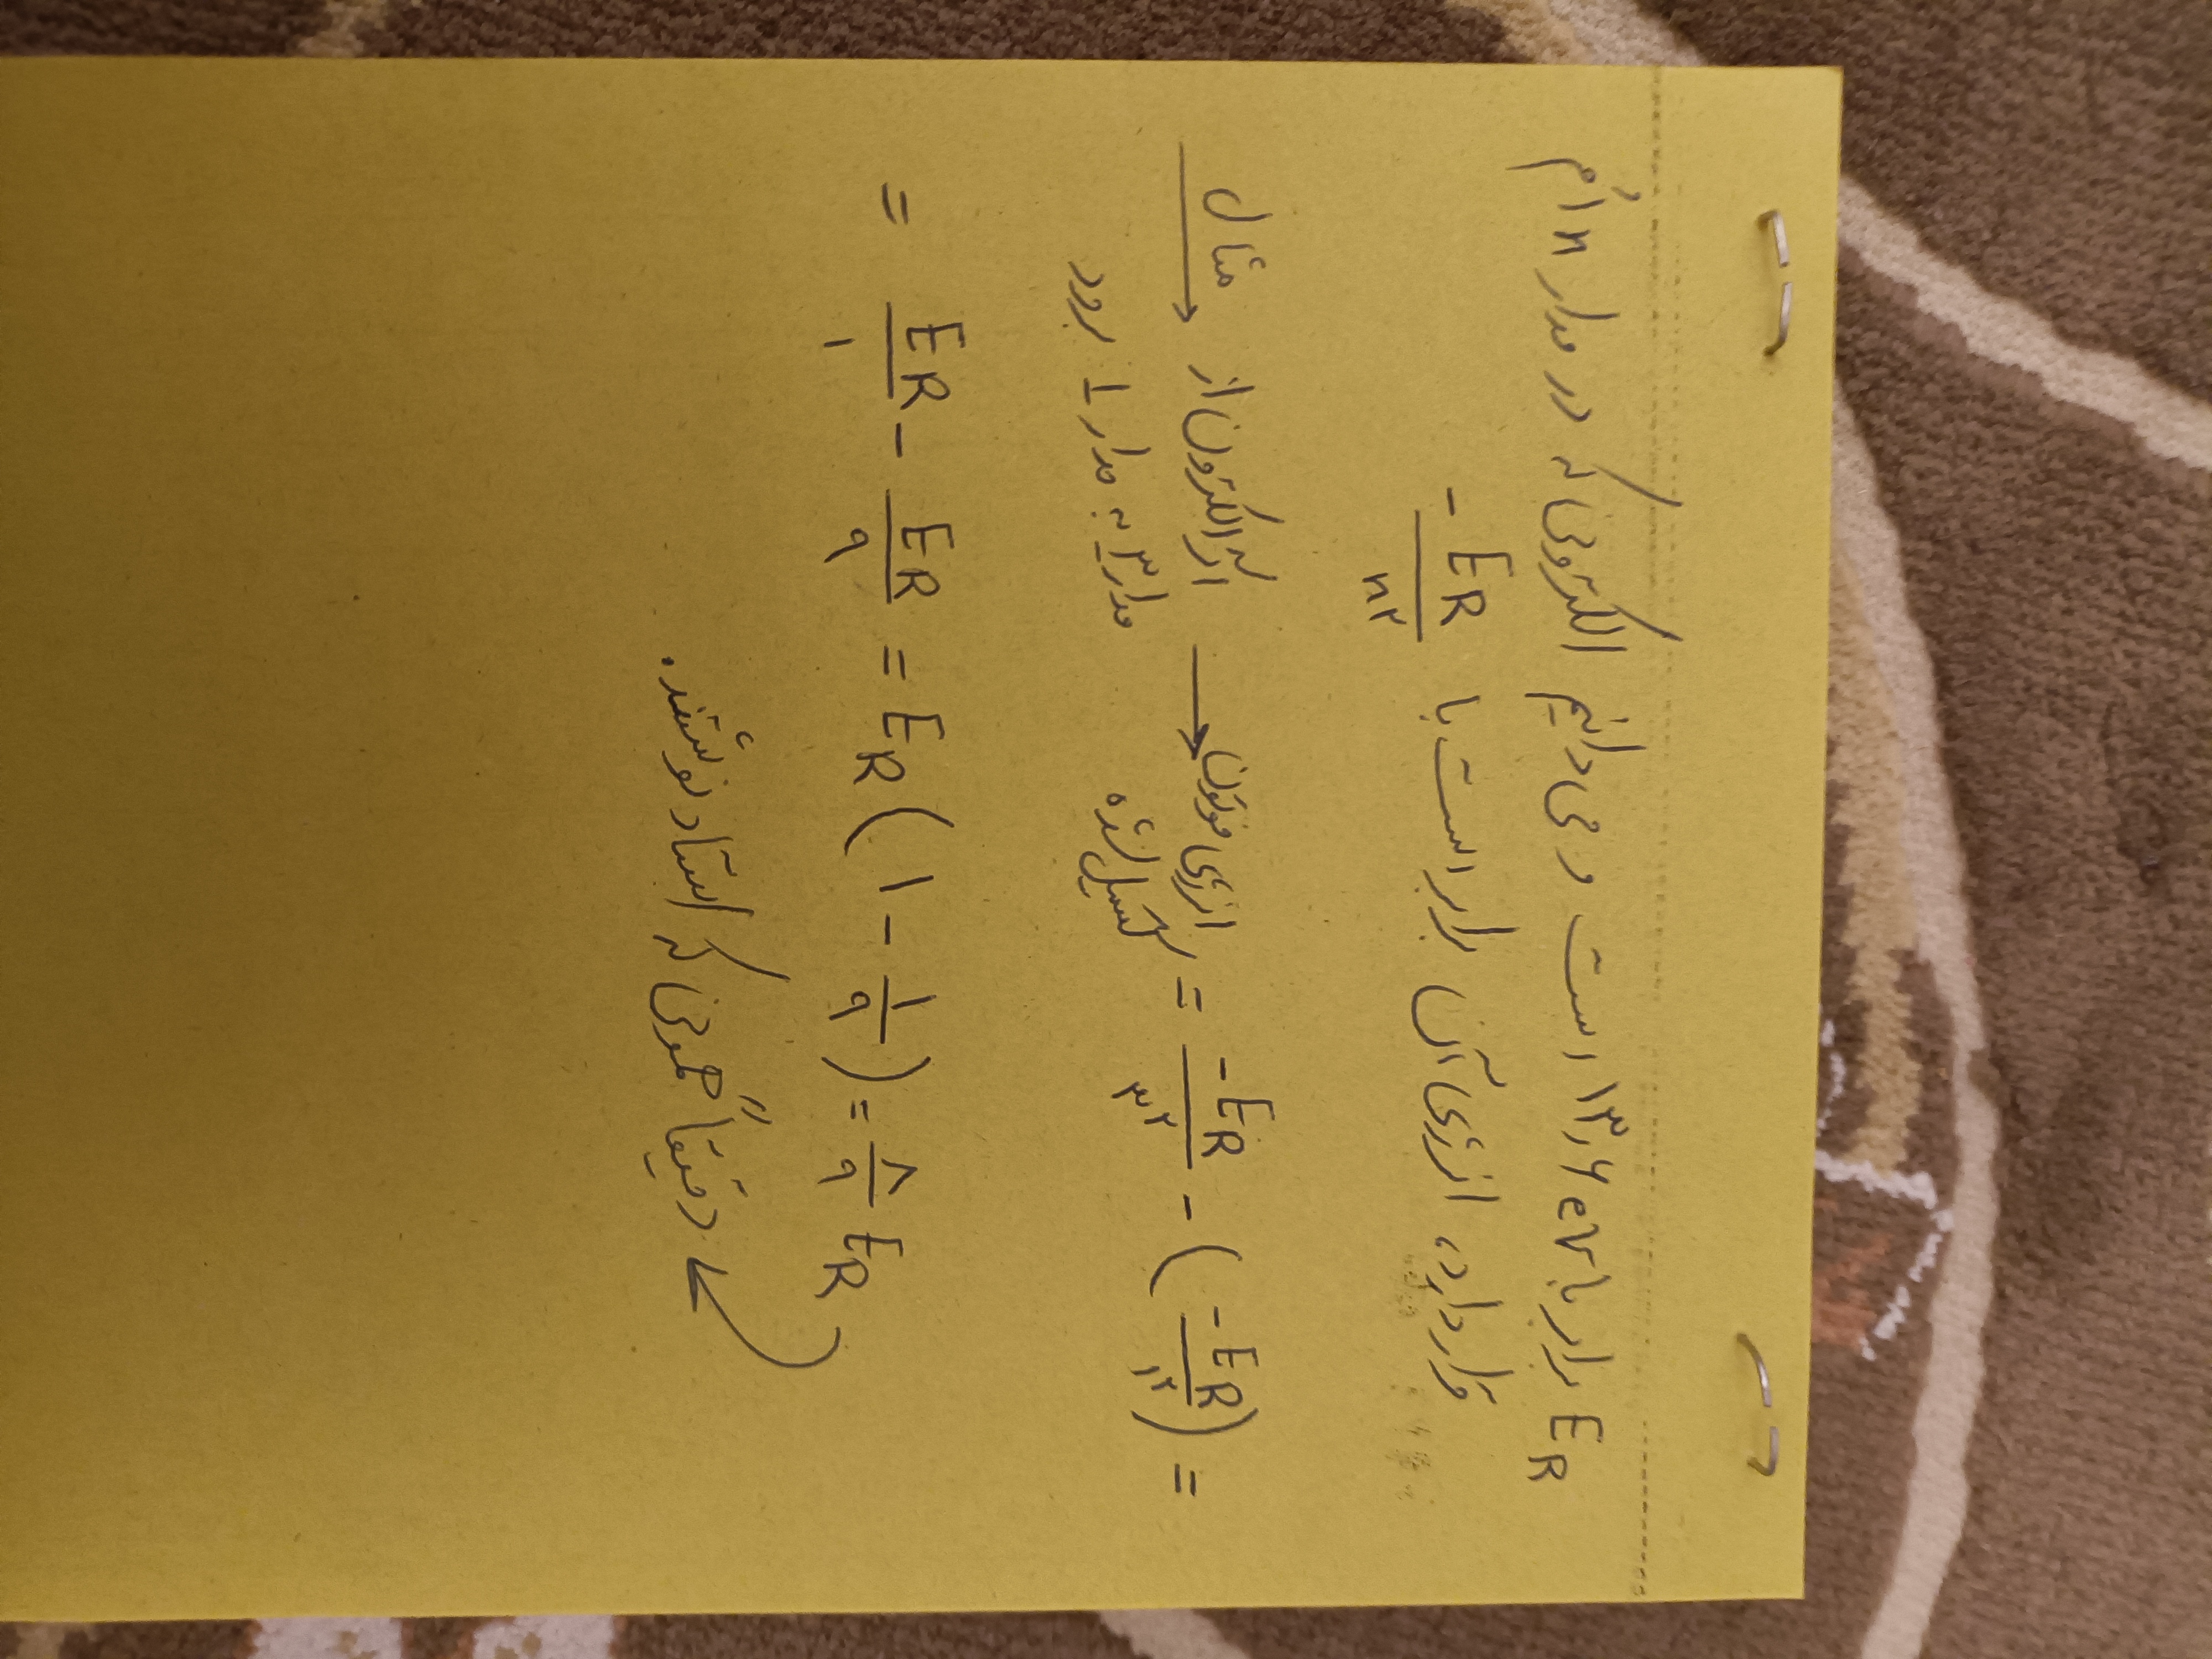 E_R برابر با ۱۳,۶ eV است و می‌دانیم الکترونی که در مدار n اُم
قرار دارد، انرژی آن برابر است با -E_R/n²
مثال → اگر الکترون از مدار ۳ به مدار ۱ برود → انرژی فوتون گسیل شده = -E_R/۳² - (-E_R/۱²) =
= E_R/۱ - E_R/۹ = E_R(۱ - ۱/۹) = ۸/۹ E_R
دقیقاً همونی که استاد نوشتند.